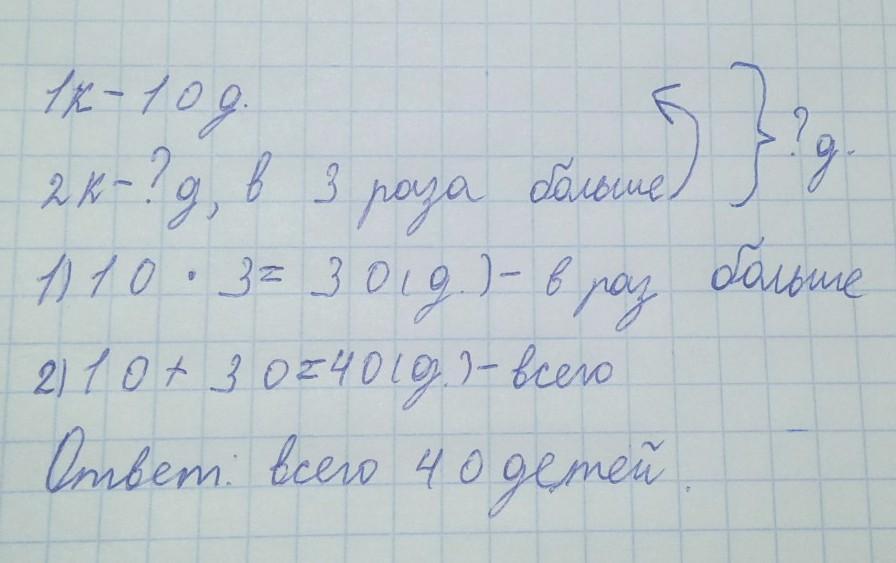 1к - 10 д.
2к - ? д, в 3 раза больше } ? д.
1) 10 · 3 = 30 (д.) - в раз больше
2) 10 + 30 = 40 (д.) - всего
Ответ: всего 40 детей.